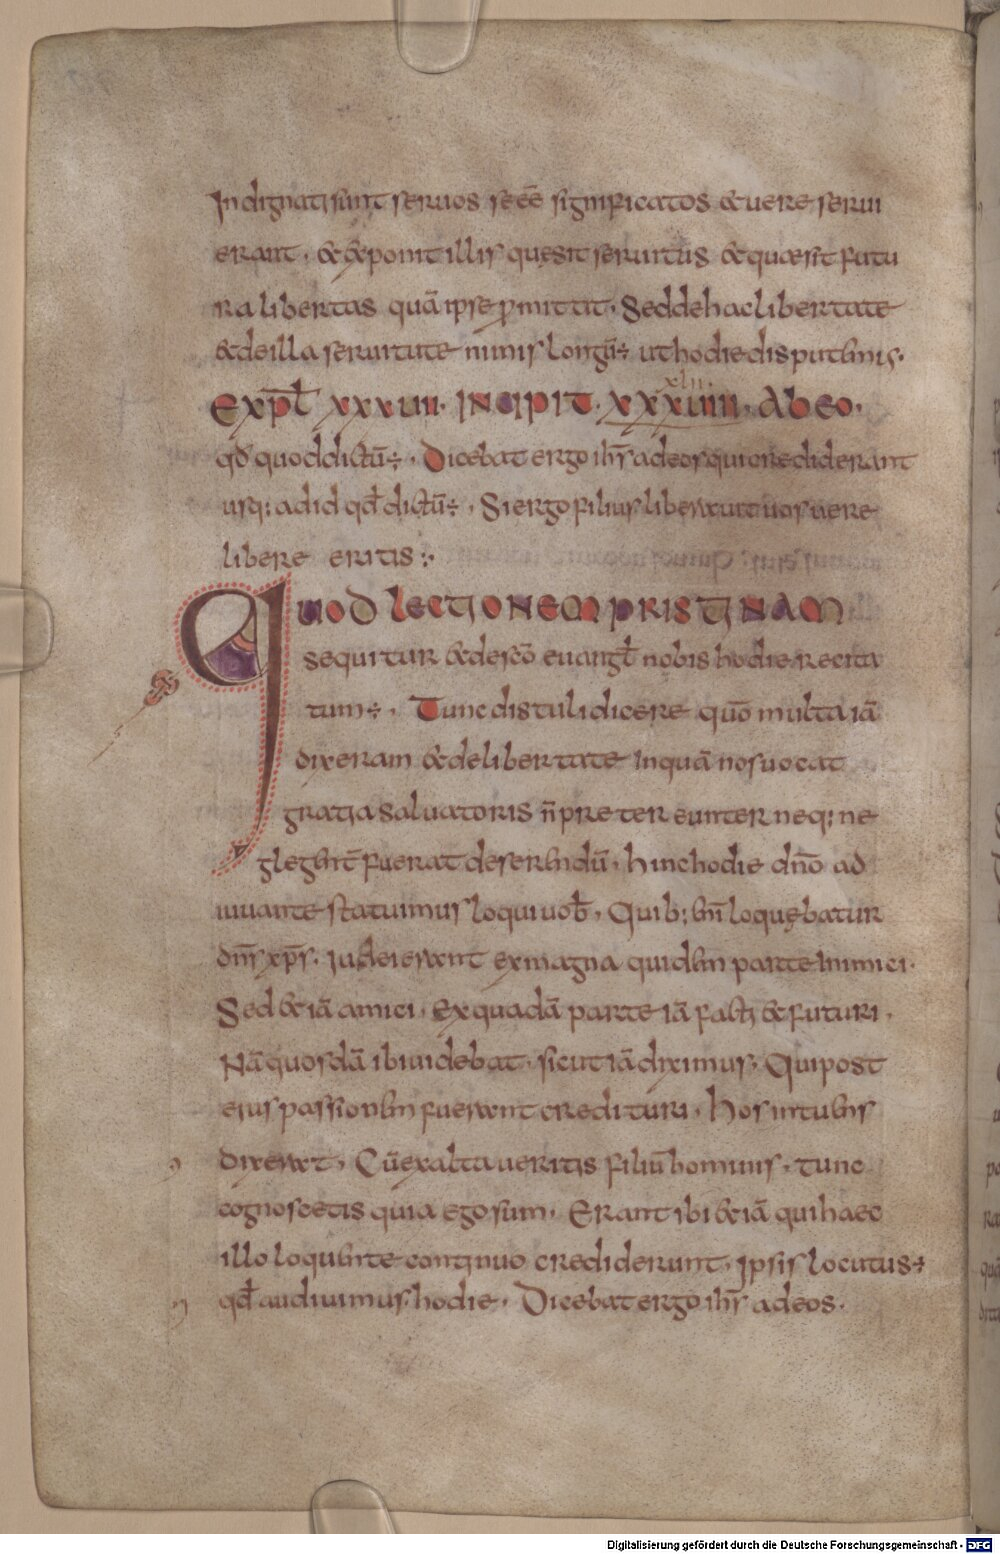 Indignati sunt seruos se eē significatos & uere serui
erant, & exponit illis quę sit seruitus & quæ sit futu
ra libertas quā ipse ꝓmittit. Sed de hac libertate
& de illa seruitute nimis longū÷ ut hodie disputemus.
xlii.
EXPLT XXXIIII. INCIPIT. XXXIIIII. AB EO.
qd̄ quod dictū÷. Dicebat ergo ih̄s ad eos qui crediderant
usq; ad id qd̄ dictū÷, Si ergo filius liberauit uos uere
libere eritis:.
QUOD LECTIONEM PRISTINAM
sequitur & de scō euangł nobis hodie recita
tum÷. Tunc distuli dicere quō multa iā
dixeram & de libertate in quā nos uocat
gratia saluatoris n̄ preter eunter neq; ne
glegent̄ fuerat deserendū, hinc hodie dn̄o ad
iuuante statuimus loqui uob̄. Quib; en̄ loquębatur
dn̄s xp̄s. iudei erant ex magna quidem parte inimici.
Sed & iā amici. Ex quadā parte iā facti & futuri.
Nā quosdā ibi uidebat, sicut iā diximus. Qui post
eius passionem fuerant credituri. Hos intuens
dixerat, Cū exaltaueritis filiū hominis, tunc
cognoscetis quia ego sum. Erant ibi & iā qui haec
illo loquente continuo crediderunt, Ipsis locutus÷
qd̄ audiuimus hodie. Dicebat ergo ih̄s ad eos.
Digitalisierung gefördert durch die Deutsche Forschungsgemeinschaft - DFG